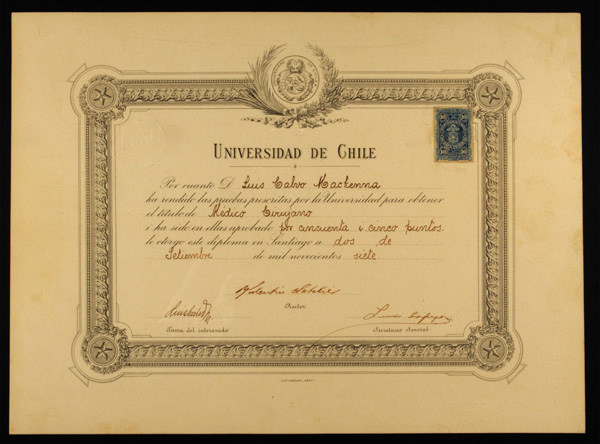 UNIVERSIDAD DE CHILE
Por cuanto D. Luis Calvo Mackenna
ha rendido las pruebas prescritas por la Universidad para obtener
el título de Médico Cirujano
i ha sido en ellas aprobado por cincuenta i cinco puntos.
le otorgo este diploma en Santiago a dos de
Setiembre de mil novecientos siete
Rector
Firma del interesado Secretario Jeneral